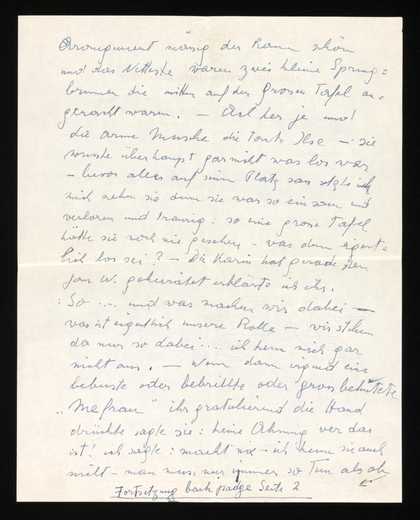 Arrangement mässig der Raum schön
und das Netteste waren zwei kleine Spring=
brunnen die mitten auf der grossen Tafel an-
gebracht waren. — Ach her je und
die arme Musche die Tante Ilse — sie
wusste überhaupt gar nicht was los war
— bevor alles auf sein Platz sass setzte ich
mich neben sie denn sie war so einsam und
verloren und traurig: so eine grosse Tafel
hätte sie noch nie gesehen — was denn eigent=
lich los sei? — Die Karin hat gerade den
Jon W. geheiratet erklärte ich ihr.
: So .... und was machen wir dabei —
was ist eigentlich unsere Rolle — wir stehen
da nur so dabei .... ich kenn mich gar
nicht aus. — Wenn dann irgend eine
oder bebrillte oder gross behütete
"Mefrau" ihr gratulierend die Hand
drückte sagte sie: keine Ahnung wer das
ist! ich sagte: macht nix — ich kenn sie auch
nicht — man muss nur immer so Tun als ob
Fortsetzung back Seite 2